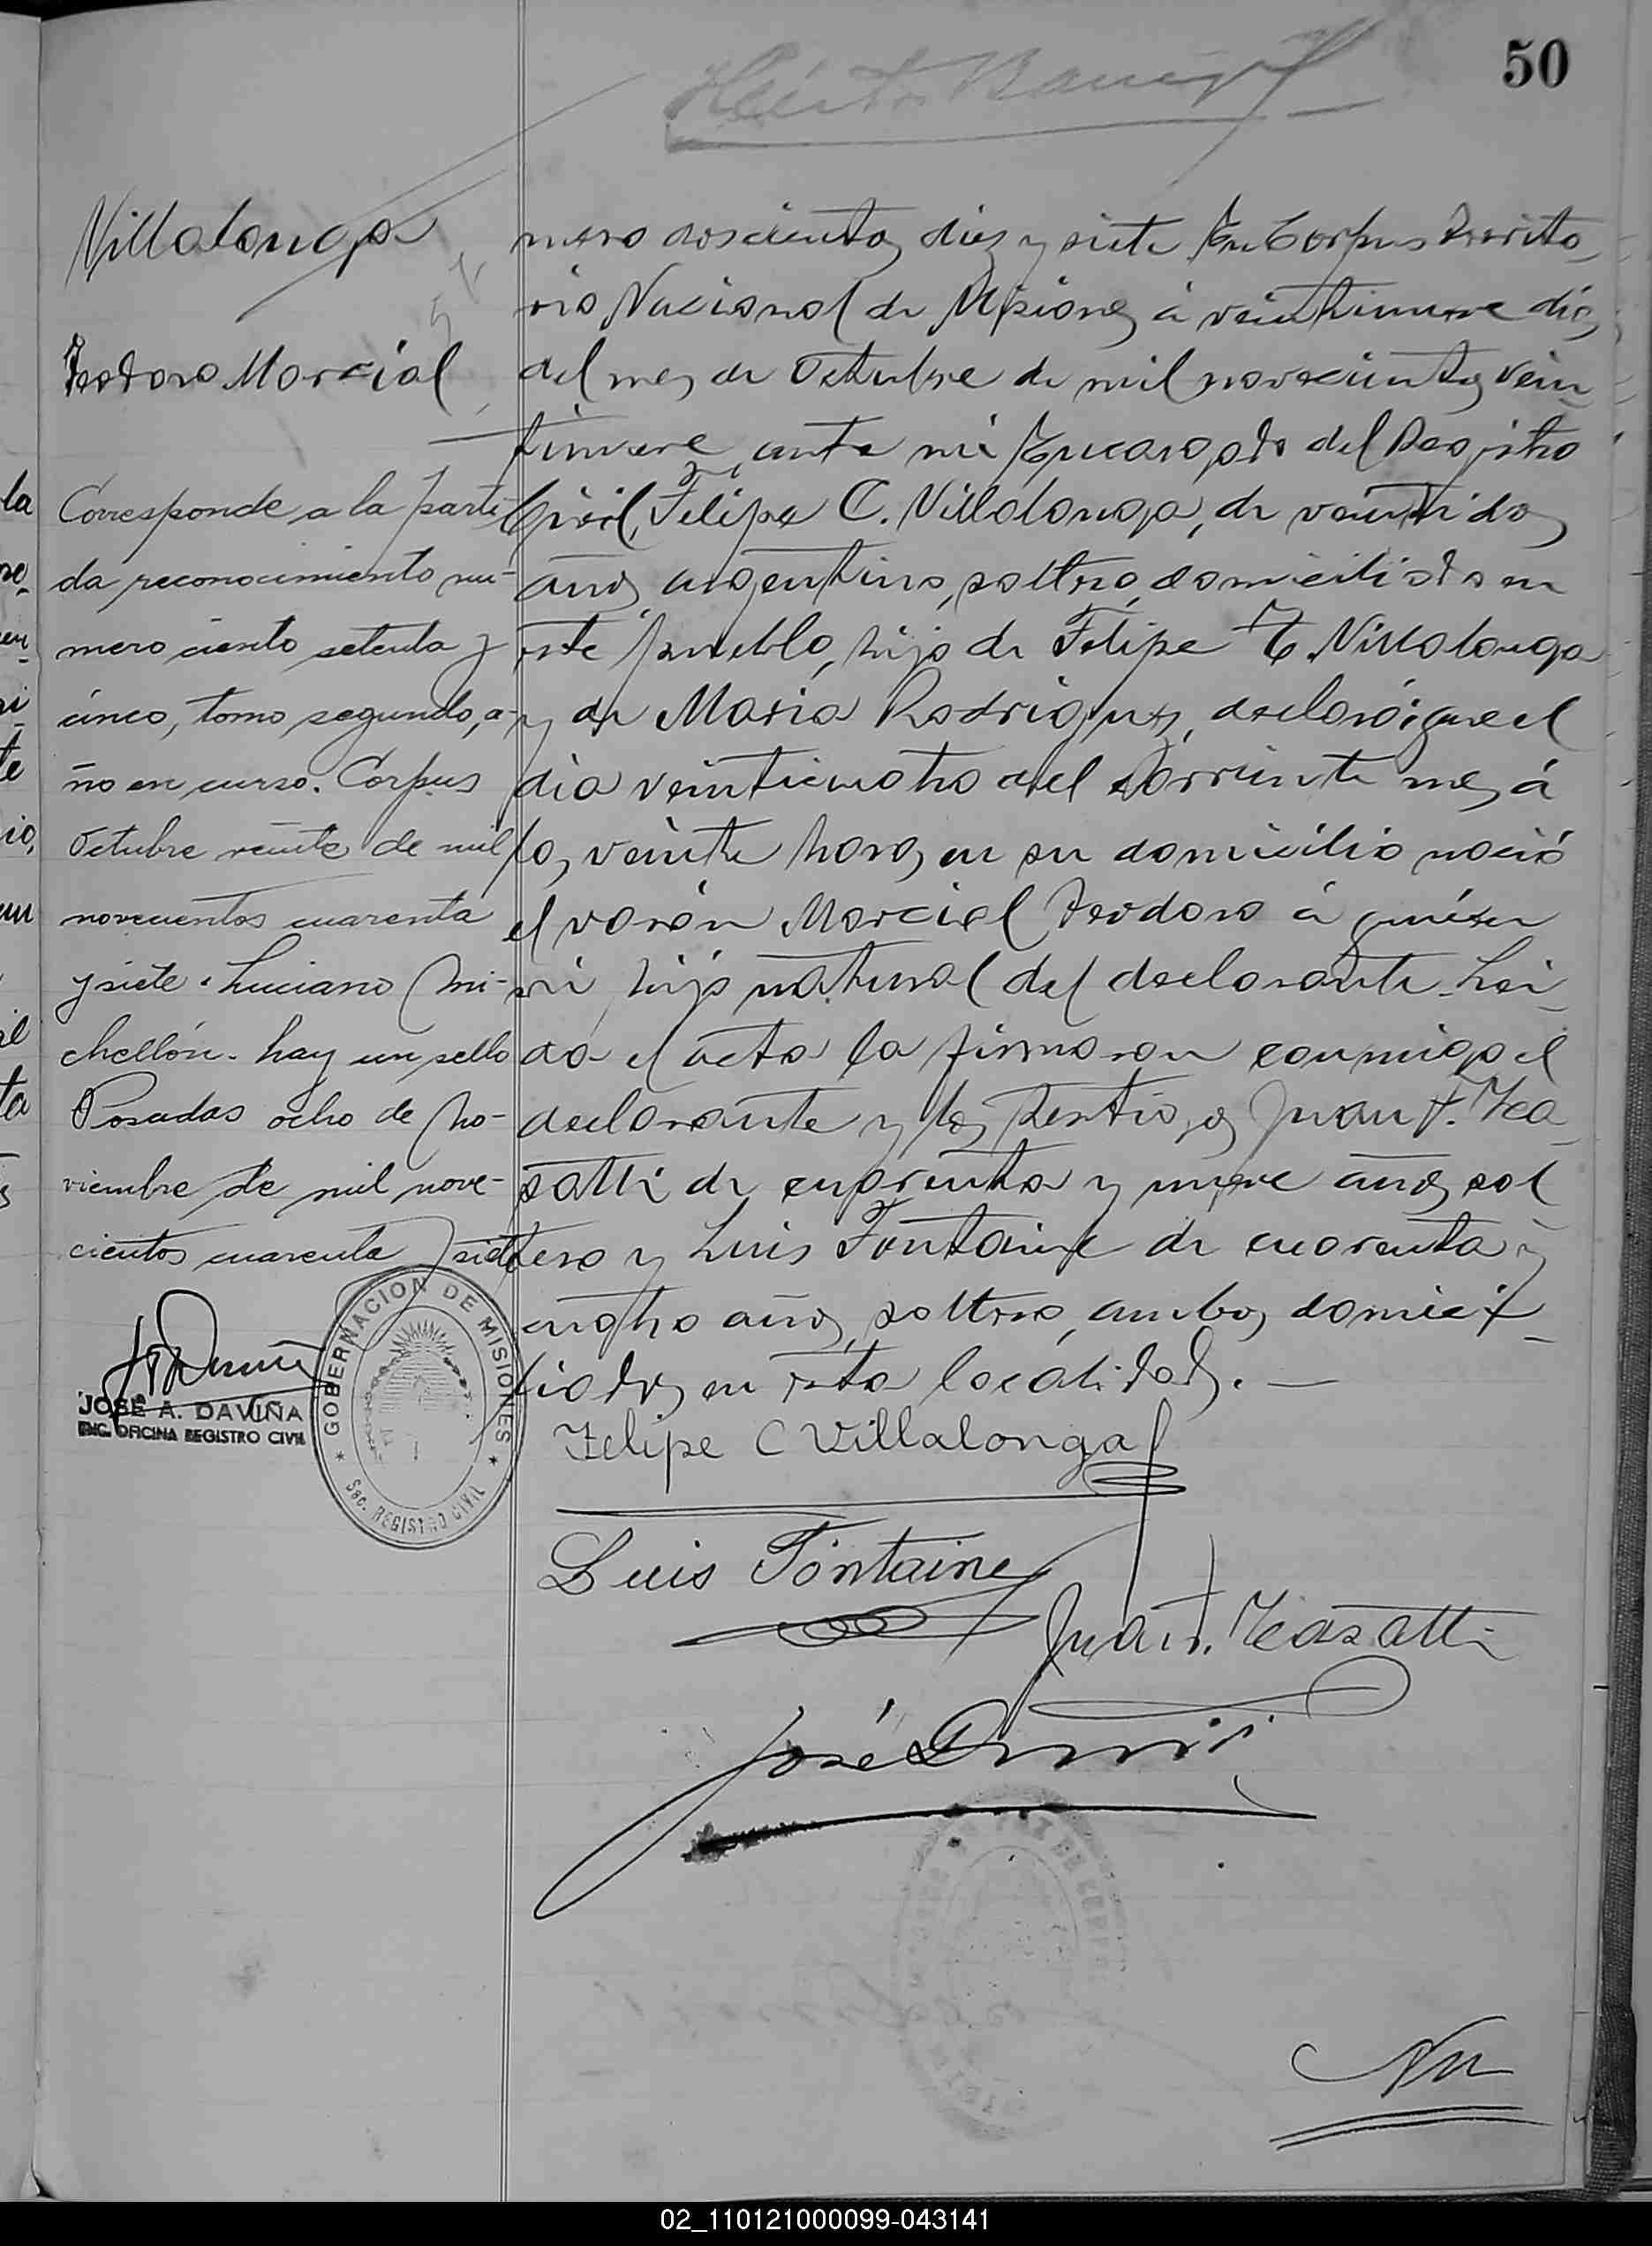 50
Villalonga
Teodoro Marcial
Corresponde a la parti-
da reconocimiento nú-
mero ciento setenta y
cinco, tomo segundo, a-
ño en curso. Corpus
Octubre veinte de mil
novecientos cuarenta
y siete. Luciano Mi-
chellón. hay un sello
Posadas ocho de No-
viembre de mil nove-
cientos cuarenta y siete
JOSÉ A. DAVIÑA
ENC. OFICINA REGISTRO CIVIL
GOBERNACION DE MISIONES
Sec. REGISTRO CIVIL
mero doscientos diez y siete En Corpus Territo-
rio Nacional de Misiones á veintinueve días
del mes de Octubre de mil novecientos vein-
tinueve, ante mi Encargado del Registro
Civil, Felipe C. Villalonga, de veintidos
años argentino, soltero, domiciliado en
este pueblo, hijo de Felipe E. Villalonga
y de Maria Rodriguez, declaró: que el
dia veinticuatro del corriente mes á
las veinte horas en su domicilio nació
el varón Marcial Teodoro á quién
hijo natural del declarante. Lei-
da el acta la firmaron conmigo el
declarante y los testigos Juan F.
de cuarenta y nueve años sol
tero y Luis Fontaine de cuarenta y
cuatro años, soltero, ambos domici-
liados en esta localidad. —
Felipe C Villalonga
Luis Fontaine
Juan F.
José
Nu
02_110121000099-043141